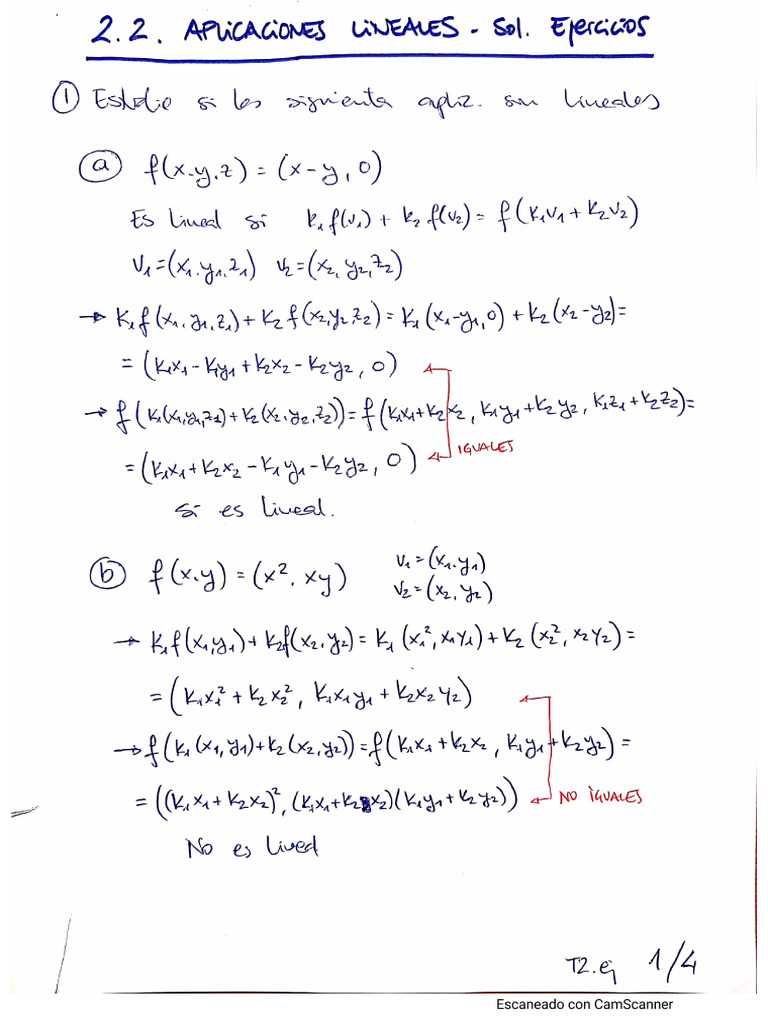 2.2. APLICACIONES LINEALES - Sol. Ejercicios
① Estudie si las siguientes aplic. son lineales
ⓐ f(x,y,z) = (x-y, 0)
Es lineal si k₁f(v₁) + k₂f(v₂) = f(k₁v₁ + k₂v₂)
v₁=(x₁,y₁,z₁) v₂=(x₂,y₂,z₂)
→ k₁f(x₁,y₁,z₁)+k₂f(x₂,y₂,z₂)=k₁(x₁-y₁,0)+k₂(x₂-y₂)=
= (k₁x₁-k₁y₁+k₂x₂-k₂y₂, 0)
→ f(k₁(x₁,y₁,z₁)+k₂(x₂,y₂,z₂))=f(k₁x₁+k₂x₂, k₁y₁+k₂y₂, k₁z₁+k₂z₂)=
=(k₁x₁+k₂x₂-k₁y₁-k₂y₂, 0) IGUALES
Si es lineal.
ⓑ f(x,y)=(x², xy) v₁=(x₁,y₁)
v₂=(x₂,y₂)
→ k₁f(x₁,y₁)+k₂f(x₂,y₂)=k₁(x₁²,x₁y₁)+k₂(x₂²,x₂y₂)=
=(k₁x₁²+k₂x₂², k₁x₁y₁+k₂x₂y₂)
→ f(k₁(x₁,y₁)+k₂(x₂,y₂))=f(k₁x₁+k₂x₂, k₁y₁+k₂y₂)=
=((k₁x₁+k₂x₂)²,(k₁x₁+k₂x₂)(k₁y₁+k₂y₂)) NO IGUALES
No es lineal
T2.ej 1/4
Escaneado con CamScanner